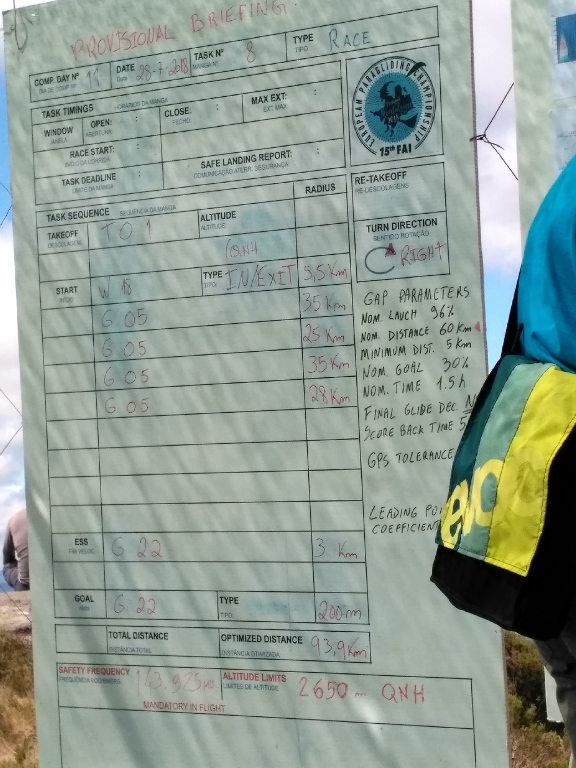 PROVISIONAL BRIEFING.
COMP. DAY Nº 11 DATE 28-7-2018 TASK Nº 8 TYPE RACE
DIA DE COMP Nº Data MANGA Nº TIPO
TASK TIMINGS HORÁRIOS DA MANGA
WINDOW OPEN: : CLOSE: : MAX EXT: :
JANELA ABERTURA FECHO EXT MAX
RACE START: :
INÍCIO DA CORRIDA
TASK DEADLINE: : SAFE LANDING REPORT: :
LIMITE DA MANGA COMUNICAÇÃO ATERR. SEGURANÇA
EUROPEAN PARAGLIDING CHAMPIONSHIP
15th FAI
TASK SEQUENCE SEQUÊNCIA DA MANGA RADIUS
TAKEOFF TO 1 ALTITUDE
DESCOLAGEM ALTITUDE
(QNH
START W 18 TYPE IN/EXIT 3,5Km
INÍCIO TIPO
G 05 35 Km
G 05 25 Km
G 05 35Km
G 05 28 Km
ESS G 22 3 Km
FIM VELOC.
GOAL G 22 TYPE 200m
Meta TIPO
TOTAL DISTANCE OPTIMIZED DISTANCE 93,9Km
DISTÂNCIA TOTAL DISTÂNCIA OTIMIZADA
RE-TAKEOFF
RE-DESCOLAGENS
TURN DIRECTION
SENTIDO ROTAÇÃO
RIGHT
GAP PARAMETERS
NOM. LAUCH 96%
NOM. DISTANCE 60 Km
MINIMUM DIST. 5 Km
NOM. GOAL 30%
NOM. TIME 1.5 h
FINAL GLIDE DEC. N
SCORE BACK TIME 5
GPS TOLERANCE
LEADING PO
COEFFICIENT
SAFETY FREQUENCY 143.925 ALTITUDE LIMITS 2650 m QNH
LIMITES DE ALTITUDE
MANDATORY IN FLIGHT
evo